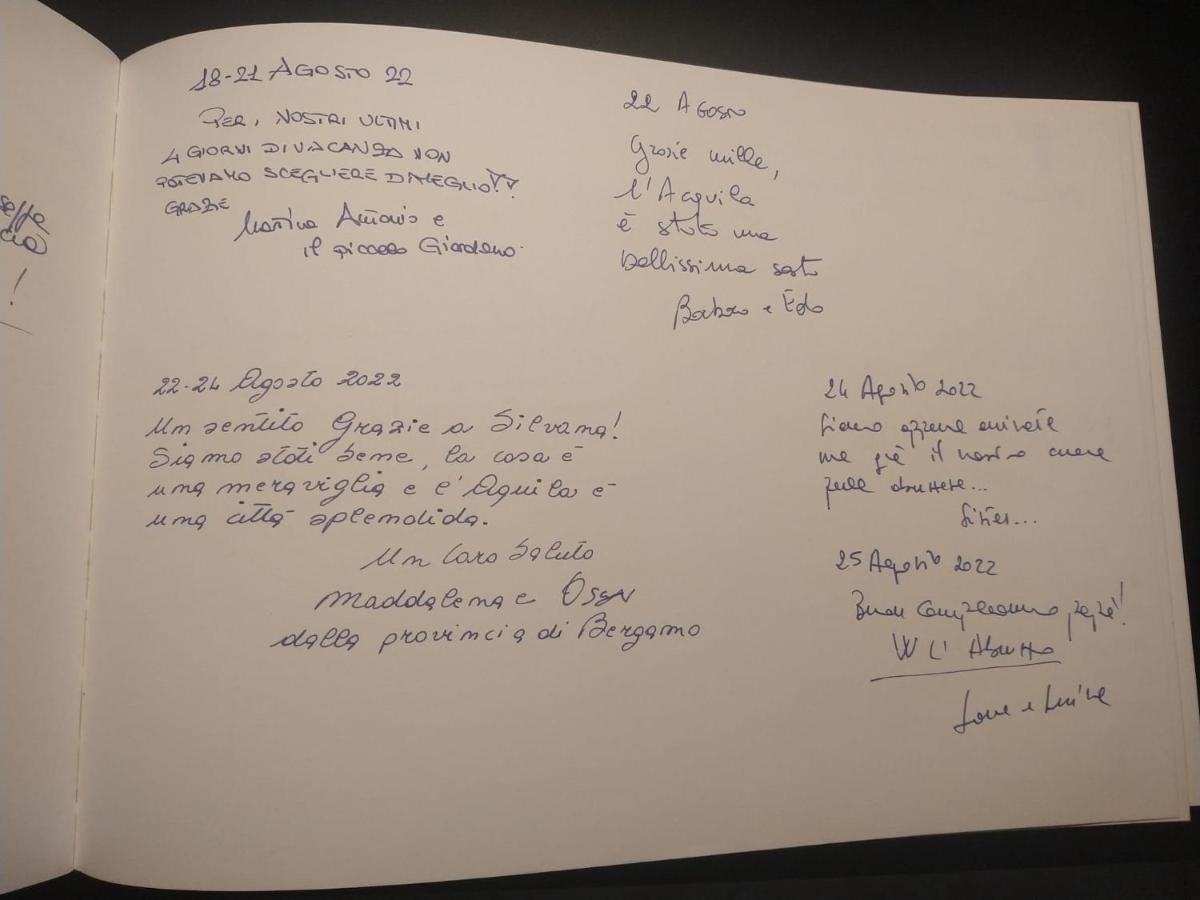 18-21 AGOSTO 22
PER I NOSTRI ULTIMI
4 GIORNI DI VACANZA NON
POTEVAMO SCEGLIERE DI MEGLIO!!
GRAZIE
Martina Antonio e
il piccolo Giordano
22 Agosto
Grazie mille,
l'Acquila
è stata una
bellissima
Barbara e Edo
22-24 Agosto 2022
Un sentito Grazie a Silvana!
Siamo stati bene, la casa è
una meraviglia e l'Aquila è
una città splendida.
Un caro saluto
Maddalena e
dalla provincia di Bergamo
24 Agosto 2022
Siamo appena arrivate
ma già il nostro cuore
...
...
25 Agosto 2022
Buon Compleanno papà!
W L'Abruzzo
e
!